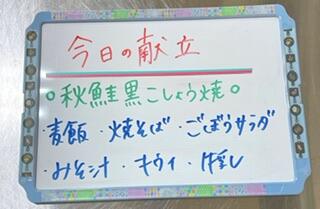 今日の献立
○秋鮭黒こしょう焼○
麦飯・焼そば・ごぼうサラダ
・みそ汁・キウイ・